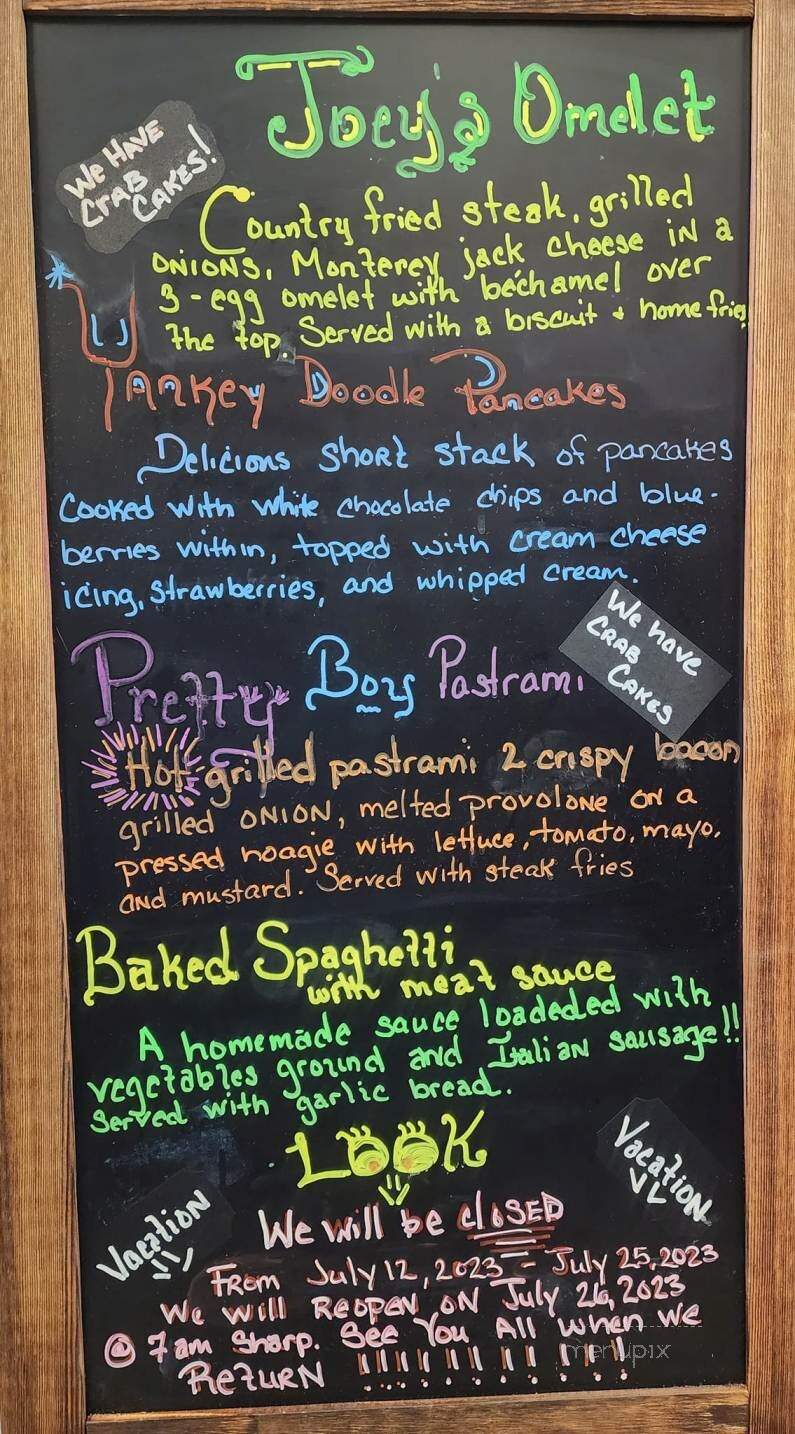 Joey's Omelet
We HAVE
CRAB
CAKES!
Country fried steak, grilled
ONIONS, Monterey jack cheese IN a
3-egg omelet with béchamel over
the top. Served with a biscuit + home fries
YANKEY Doodle Pancakes
Delicious short stack of pancakes
Cooked with white chocolate chips and blue-
berries within, topped with cream cheese
icing, strawberries, and whipped cream.
We have
CRAB
CAKES
Pretty Boy Pastrami
Hot grilled pastrami 2 crispy bacon
grilled ONION, melted provolone on a
pressed hoagie with lettuce, tomato, mayo,
and mustard. Served with steak fries
Baked Spaghetti
with meat sauce
A homemade sauce loadeded with
vegetables ground and Italian sausage!!
Served with garlic bread.
LOOK
Vacation
Vacation
We will be closed
From July 12, 2023 - July 25, 2023
We will REOPEN ON July 26, 2023
@ 7am Sharp. See You All when we
ReturN !!!!!!!!!!!!
menupix